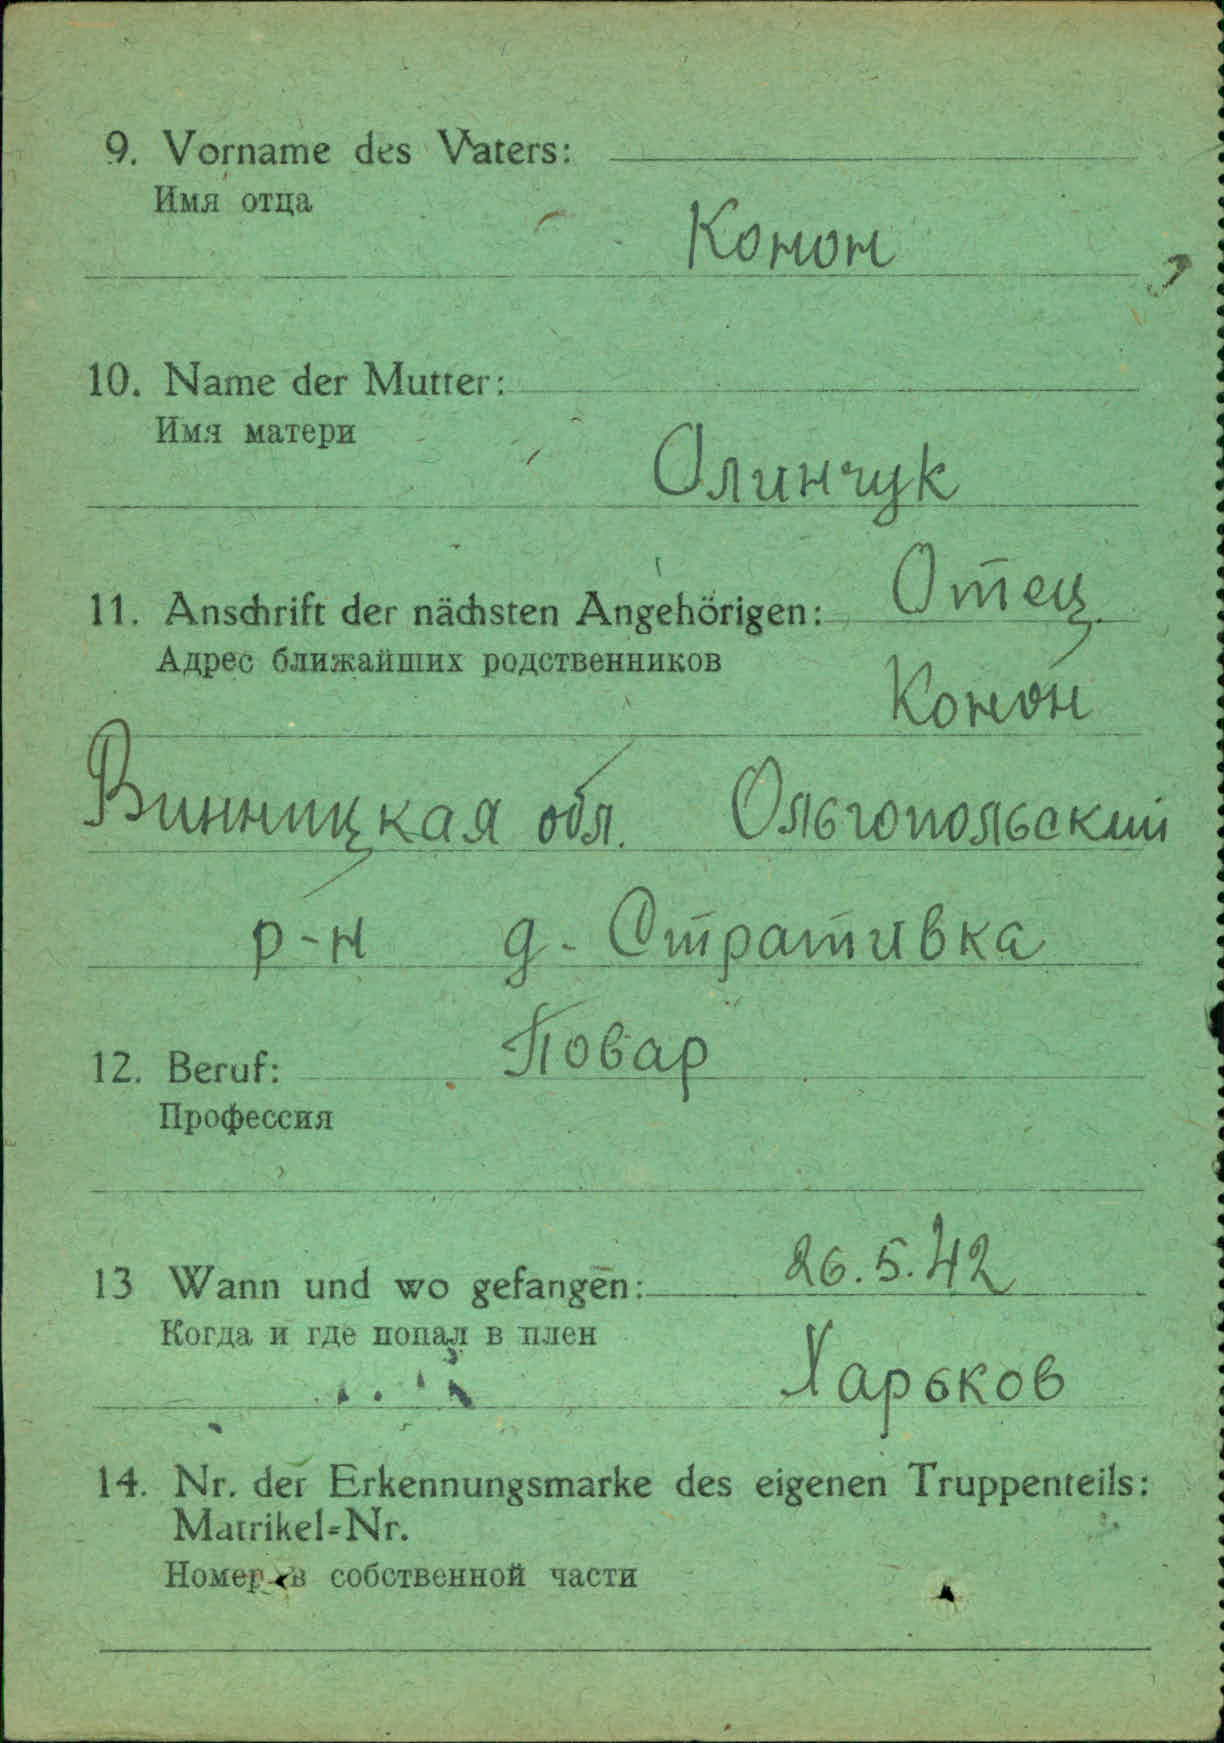 9. Vorname des Vaters:
Имя отца
Конон
10. Name der Mutter:
Имя матери
Олинчук
11. Anschrift der nächsten Angehörigen: Отец
Адрес ближайших родственников
Конон
Винницкая обл. Ольгопольский
р-н д. Стративка
12. Beruf: Повар
Профессия
13 Wann und wo gefangen: 26.5.42
Когда и где попал в плен
Харьков
14. Nr. der Erkennungsmarke des eigenen Truppenteils:
Matrikel=Nr.
Номер в собственной части